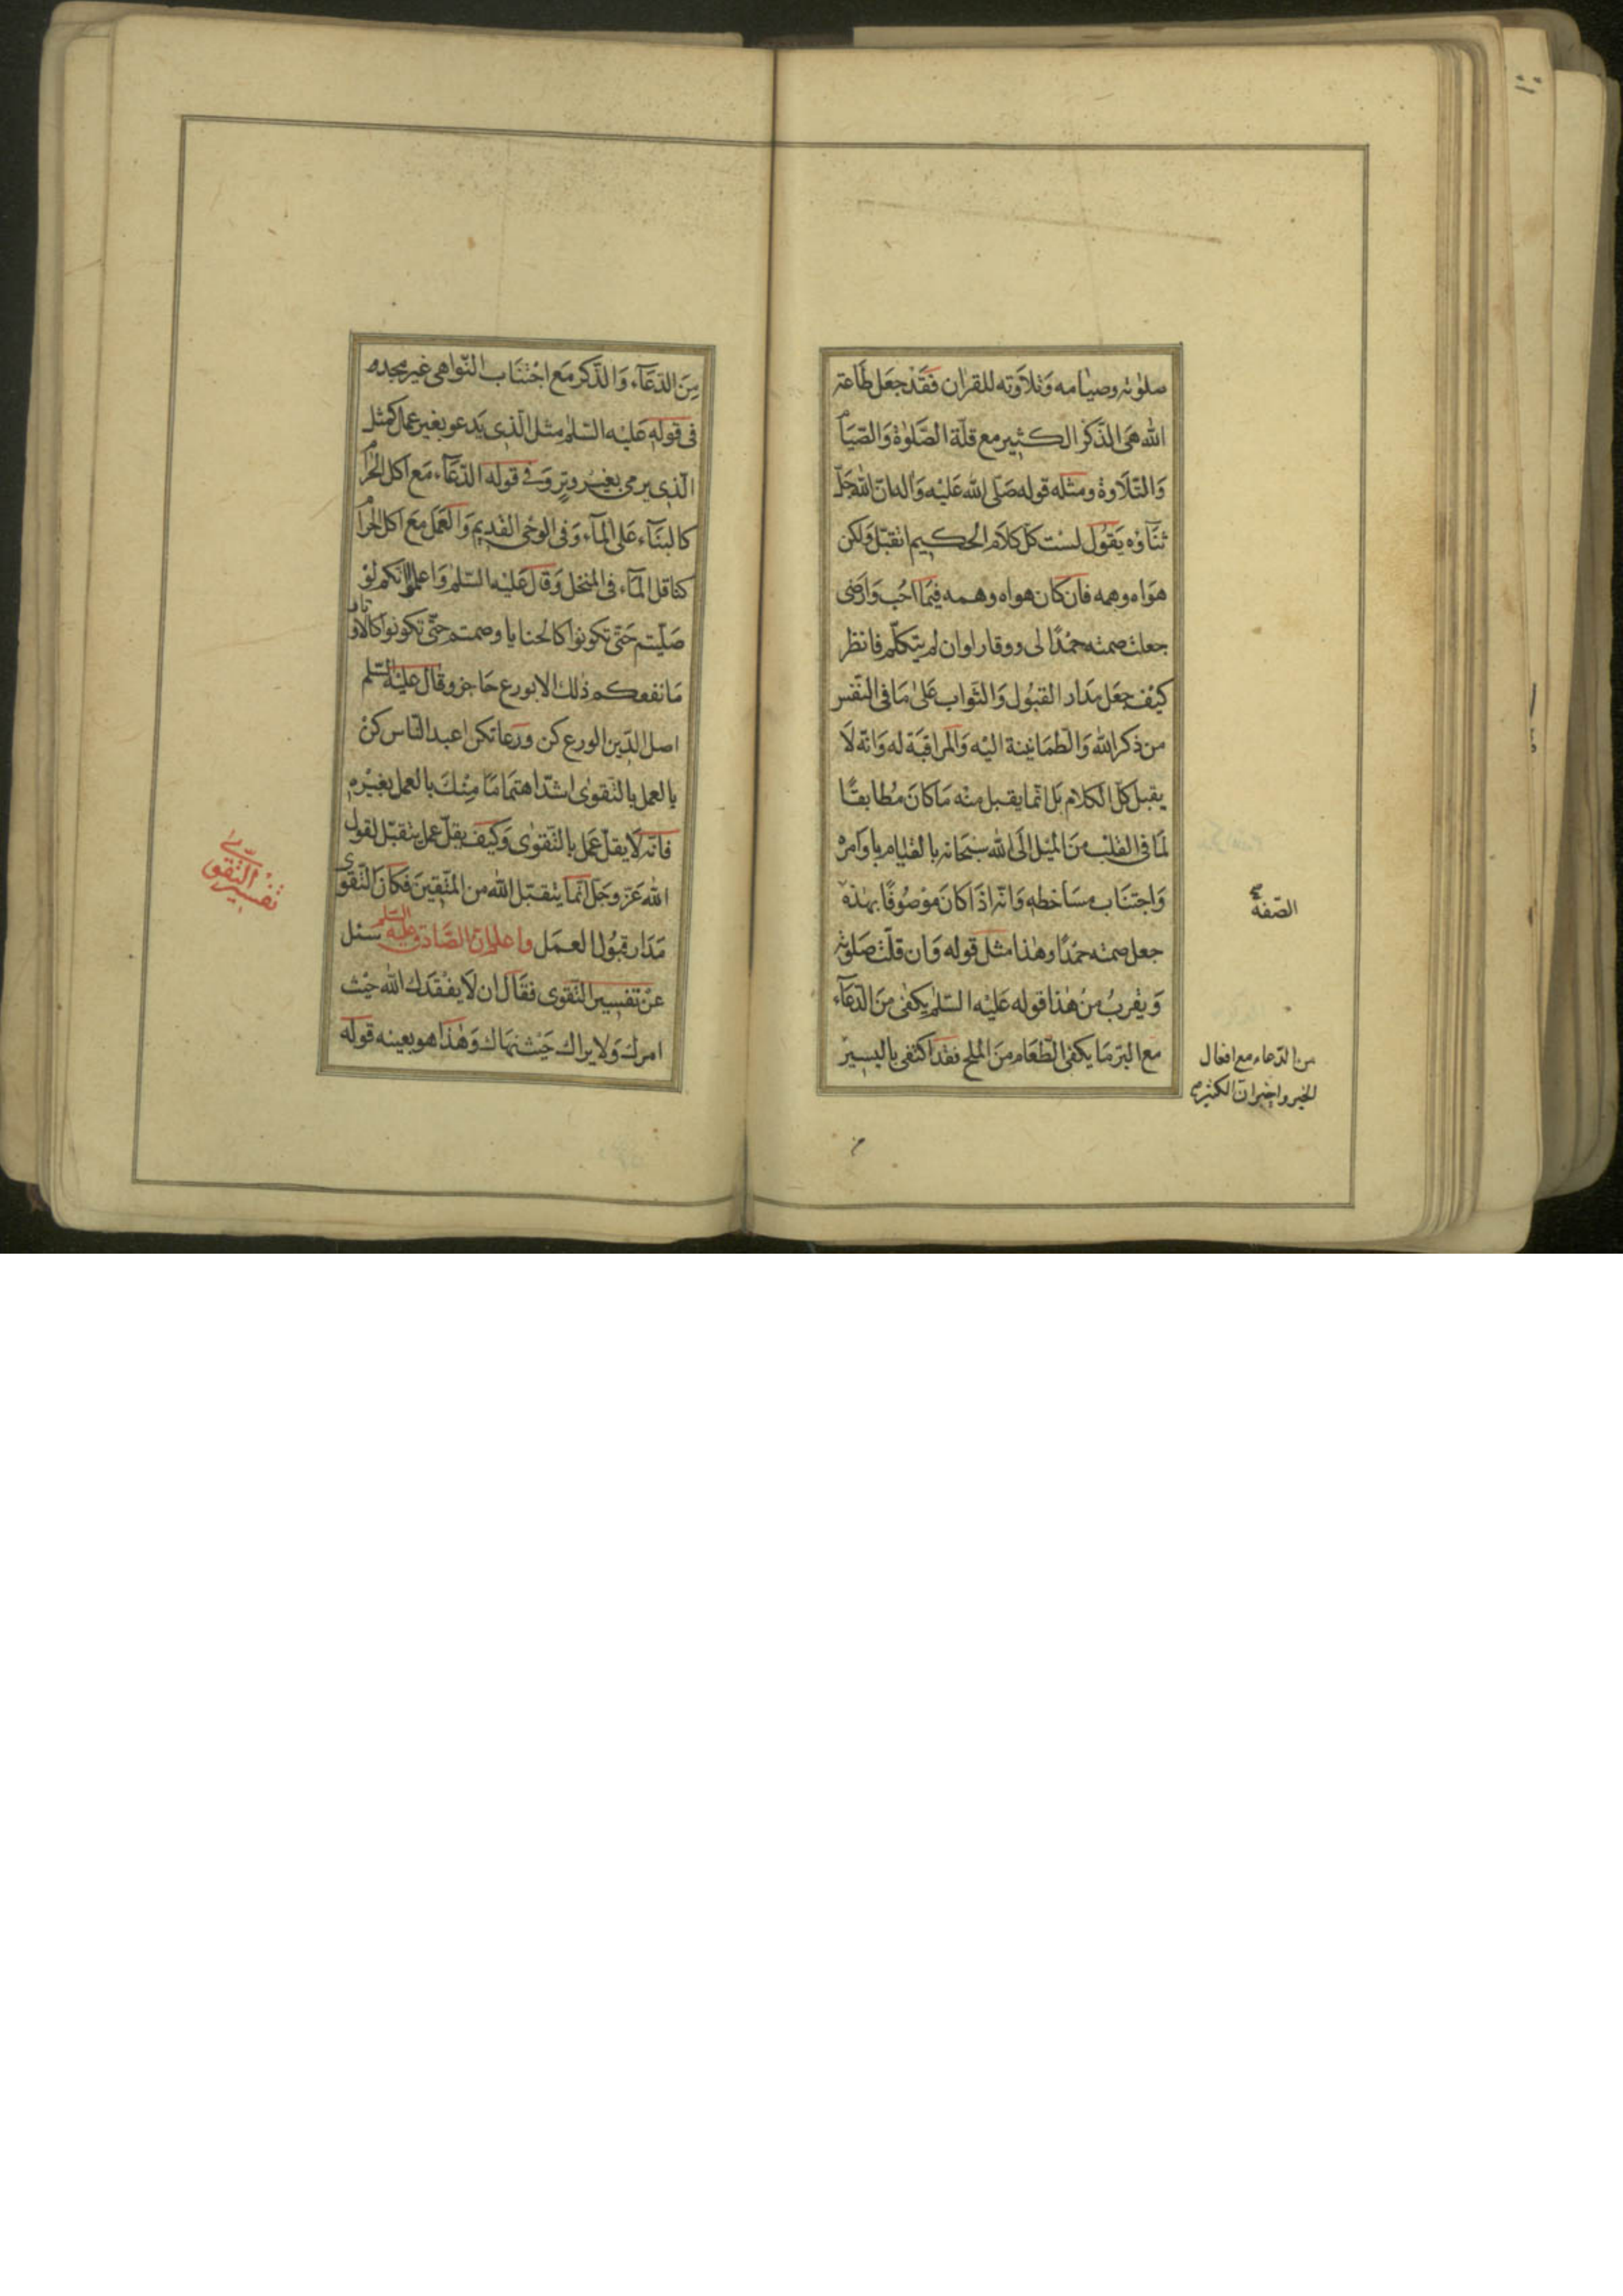 صلوٰته وصيٰامه وَتلاَوته للقرٰان فَقَدْ جعَل طَاعة
الله هىَ الذّكر الكثيرمع قلّة الصَّلوٰة وَالصّيَام
وَالتّلاَوة ومثله قوله صَلّى الله عَليْه وَاله انّ الله جَلّ
ثنَآؤه يَقُول لسْت كلّ كلاَم الحكيم اتقبّل وَلكن
هوَاه وهمه فان كان هواه وهمه فيمَا احُب وَارَضى
جعلت صمته حمْدًا لى ووقارا وان لم يتكلّم فانظر
كيْف جعَل مَدار القبُول وَالثّواب عَلىٰ مَا فى النّفس
من ذكر الله وَالطّمَانينة اليْه وَالمراقبَة له وَانّه لاَ
يقبل كلّ الكلام بَل انّما يقبل منْه مَا كانَ مُطابقًا
لمَا فى القلب منَ المْيل الَى الله سبْحَانه بالقيٰام باوَامره
وَاجتنَاب مسَاخطه وَانّه اذَا كانَ موْصُوفًا بهٰذه
الصّفة
جعل صمته حمْدًا وهٰذا مثل قوله وَان قلّت صَلوٰته
وَيقربُ منْ هٰذا قوله عَليْه السّلم يكفى منَ الدّعَآء
مع البرّ مَا يكفى الطّعَام منَ الملح فقد اكتفى باليسيرْ
من الدّعاء مع افعال
الخير واخبر انّ الكثيرم
منَ الدّعَآء وَالذّكر مَع اجْتنَاب النّواهى غير مجده
فى قوله عَليْه السّلٰم مثل الّذى يَدعو بغير عمل كمثل
الّذى يرمى بغيْر وترٍ وَفى قوله الدّعَآء مَع اكل الحرام
كالبنَآء عَلى المآء وَفى الوحْى القديم وَالعَمَل مَع اكل الحرام
كناقل المآء فى المنخل وَقال عَليْه السّلٰم وَاعلموا انّكم لوْ
صَلّيتم حَتّى تكونوا كالحنايا وصمتم حتّى تكونوا كالاوتار
مَا نفعكم ذٰلك الا بورع حَاجز وقال عَليْه السّلم
اصل الدّين الورع كن ورَعا تكن اعبد النّاس كنْ
بالعمل بالتّقوٰى اشدّ اهتمَامًا منْكَ بالعمل بغيْره
فانّه لاَ يقلّ عَمل بالتّقوٰى وَكيْف يقلّ عمل يتقبّل لقول
الله عَزّ وجَلّ انّما يتقبّل الله من المتّقينَ فكانَ التّقوى
مَدَار قبُول العمَل واعلم انّ الصَّادق عليْه السّلم سئل
تفسير التّقوى
عنْ تفسير التّقوى فقَال ان لاَ يفقدك الله حيْث
امرك وَلا يراك حَيْث نهَاك وَهٰذا هو بعينه قوله